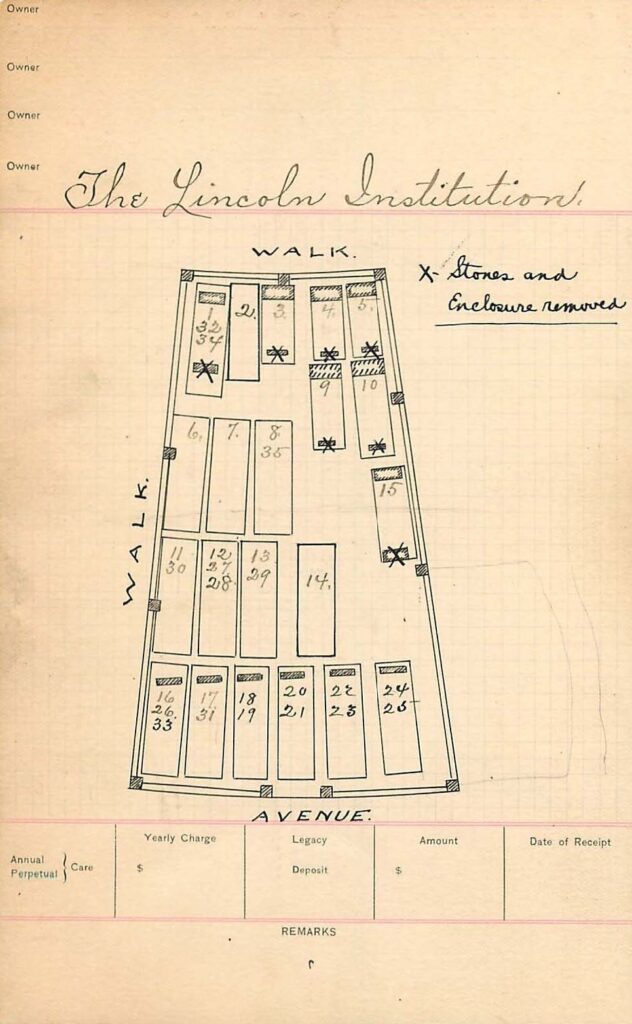 Owner
Owner
Owner
Owner
The Lincoln Institution.
WALK.
X- Stones and
Enclosure removed
1
32
34
2.
3.
4.
5.
9
10
6.
7.
8.
35
15
WALK.
11
30
12
27
28
13
29
14.
16
26
33
17
31
18
19
20
21
22
23
24
25
AVENUE.
Annual
Perpetual } Care
Yearly Charge
$
Legacy
Deposit
Amount
$
Date of Receipt
REMARKS